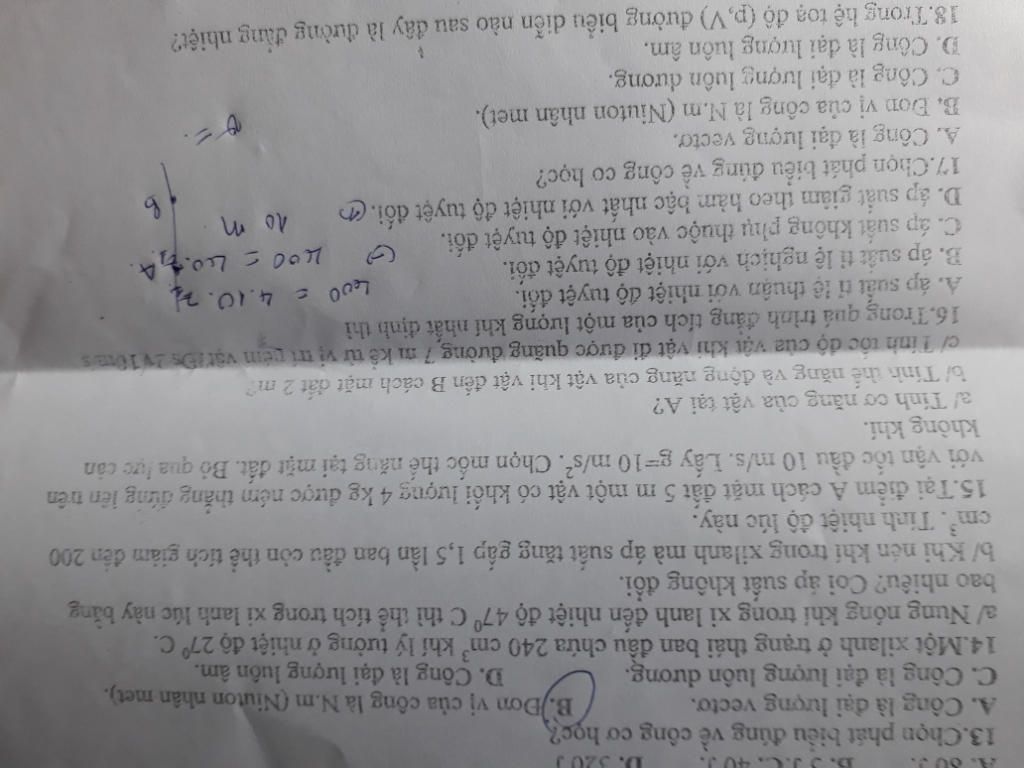 A. 80 J. B. 5 J. C. 40 J. D. 320 J
13.Chọn phát biểu đúng về công cơ học?
A. Công là đại lượng vectơ. B. Đơn vị của công là N.m (Niuton nhân met).
C. Công là đại lượng luôn dương. D. Công là đại lượng luôn âm.
14.Một xilanh ở trạng thái ban đầu chứa 240 cm³ khí lý tưởng ở nhiệt độ 27⁰ C.
a/ Nung nóng khí trong xi lanh đến nhiệt độ 47⁰ C thì thể tích trong xi lanh lúc này bằng
bao nhiêu? Coi áp suất không đổi.
b/ Khi nén khí trong xilanh mà áp suất tăng gấp 1,5 lần ban đầu còn thể tích giảm đến 200
cm³. Tính nhiệt độ lúc này.
15.Tại điểm A cách mặt đất 5 m một vật có khối lượng 4 kg được ném thẳng đứng lên trên
với vận tốc đầu 10 m/s. Lấy g=10 m/s². Chọn mốc thế năng tại mặt đất. Bỏ qua lực cản
không khí.
a/ Tính cơ năng của vật tại A?
b/ Tính thế năng và động năng của vật khi vật đến B cách mặt đất 2 m?
c/ Tính tốc độ của vật khi vật đi được quãng đường 7 m kể từ vị trí ném vật?
16.Trong quá trình đẳng tích của một lượng khí nhất định thì
A. áp suất tỉ lệ thuận với nhiệt độ tuyệt đối.
400 = 4.10.
B. áp suất tỉ lệ nghịch với nhiệt độ tuyệt đối.
400 = 40.
C. áp suất không phụ thuộc vào nhiệt độ tuyệt đối.
10 m
D. áp suất giảm theo hàm bậc nhất với nhiệt độ tuyệt đối.
17.Chọn phát biểu đúng về công cơ học?
A. Công là đại lượng vectơ.
B. Đơn vị của công là N.m (Niuton nhân met).
C. Công là đại lượng luôn dương.
D. Công là đại lượng luôn âm.
18.Trong hệ toạ độ (p,V) đường biểu diễn nào sau đây là đường đẳng nhiệt?